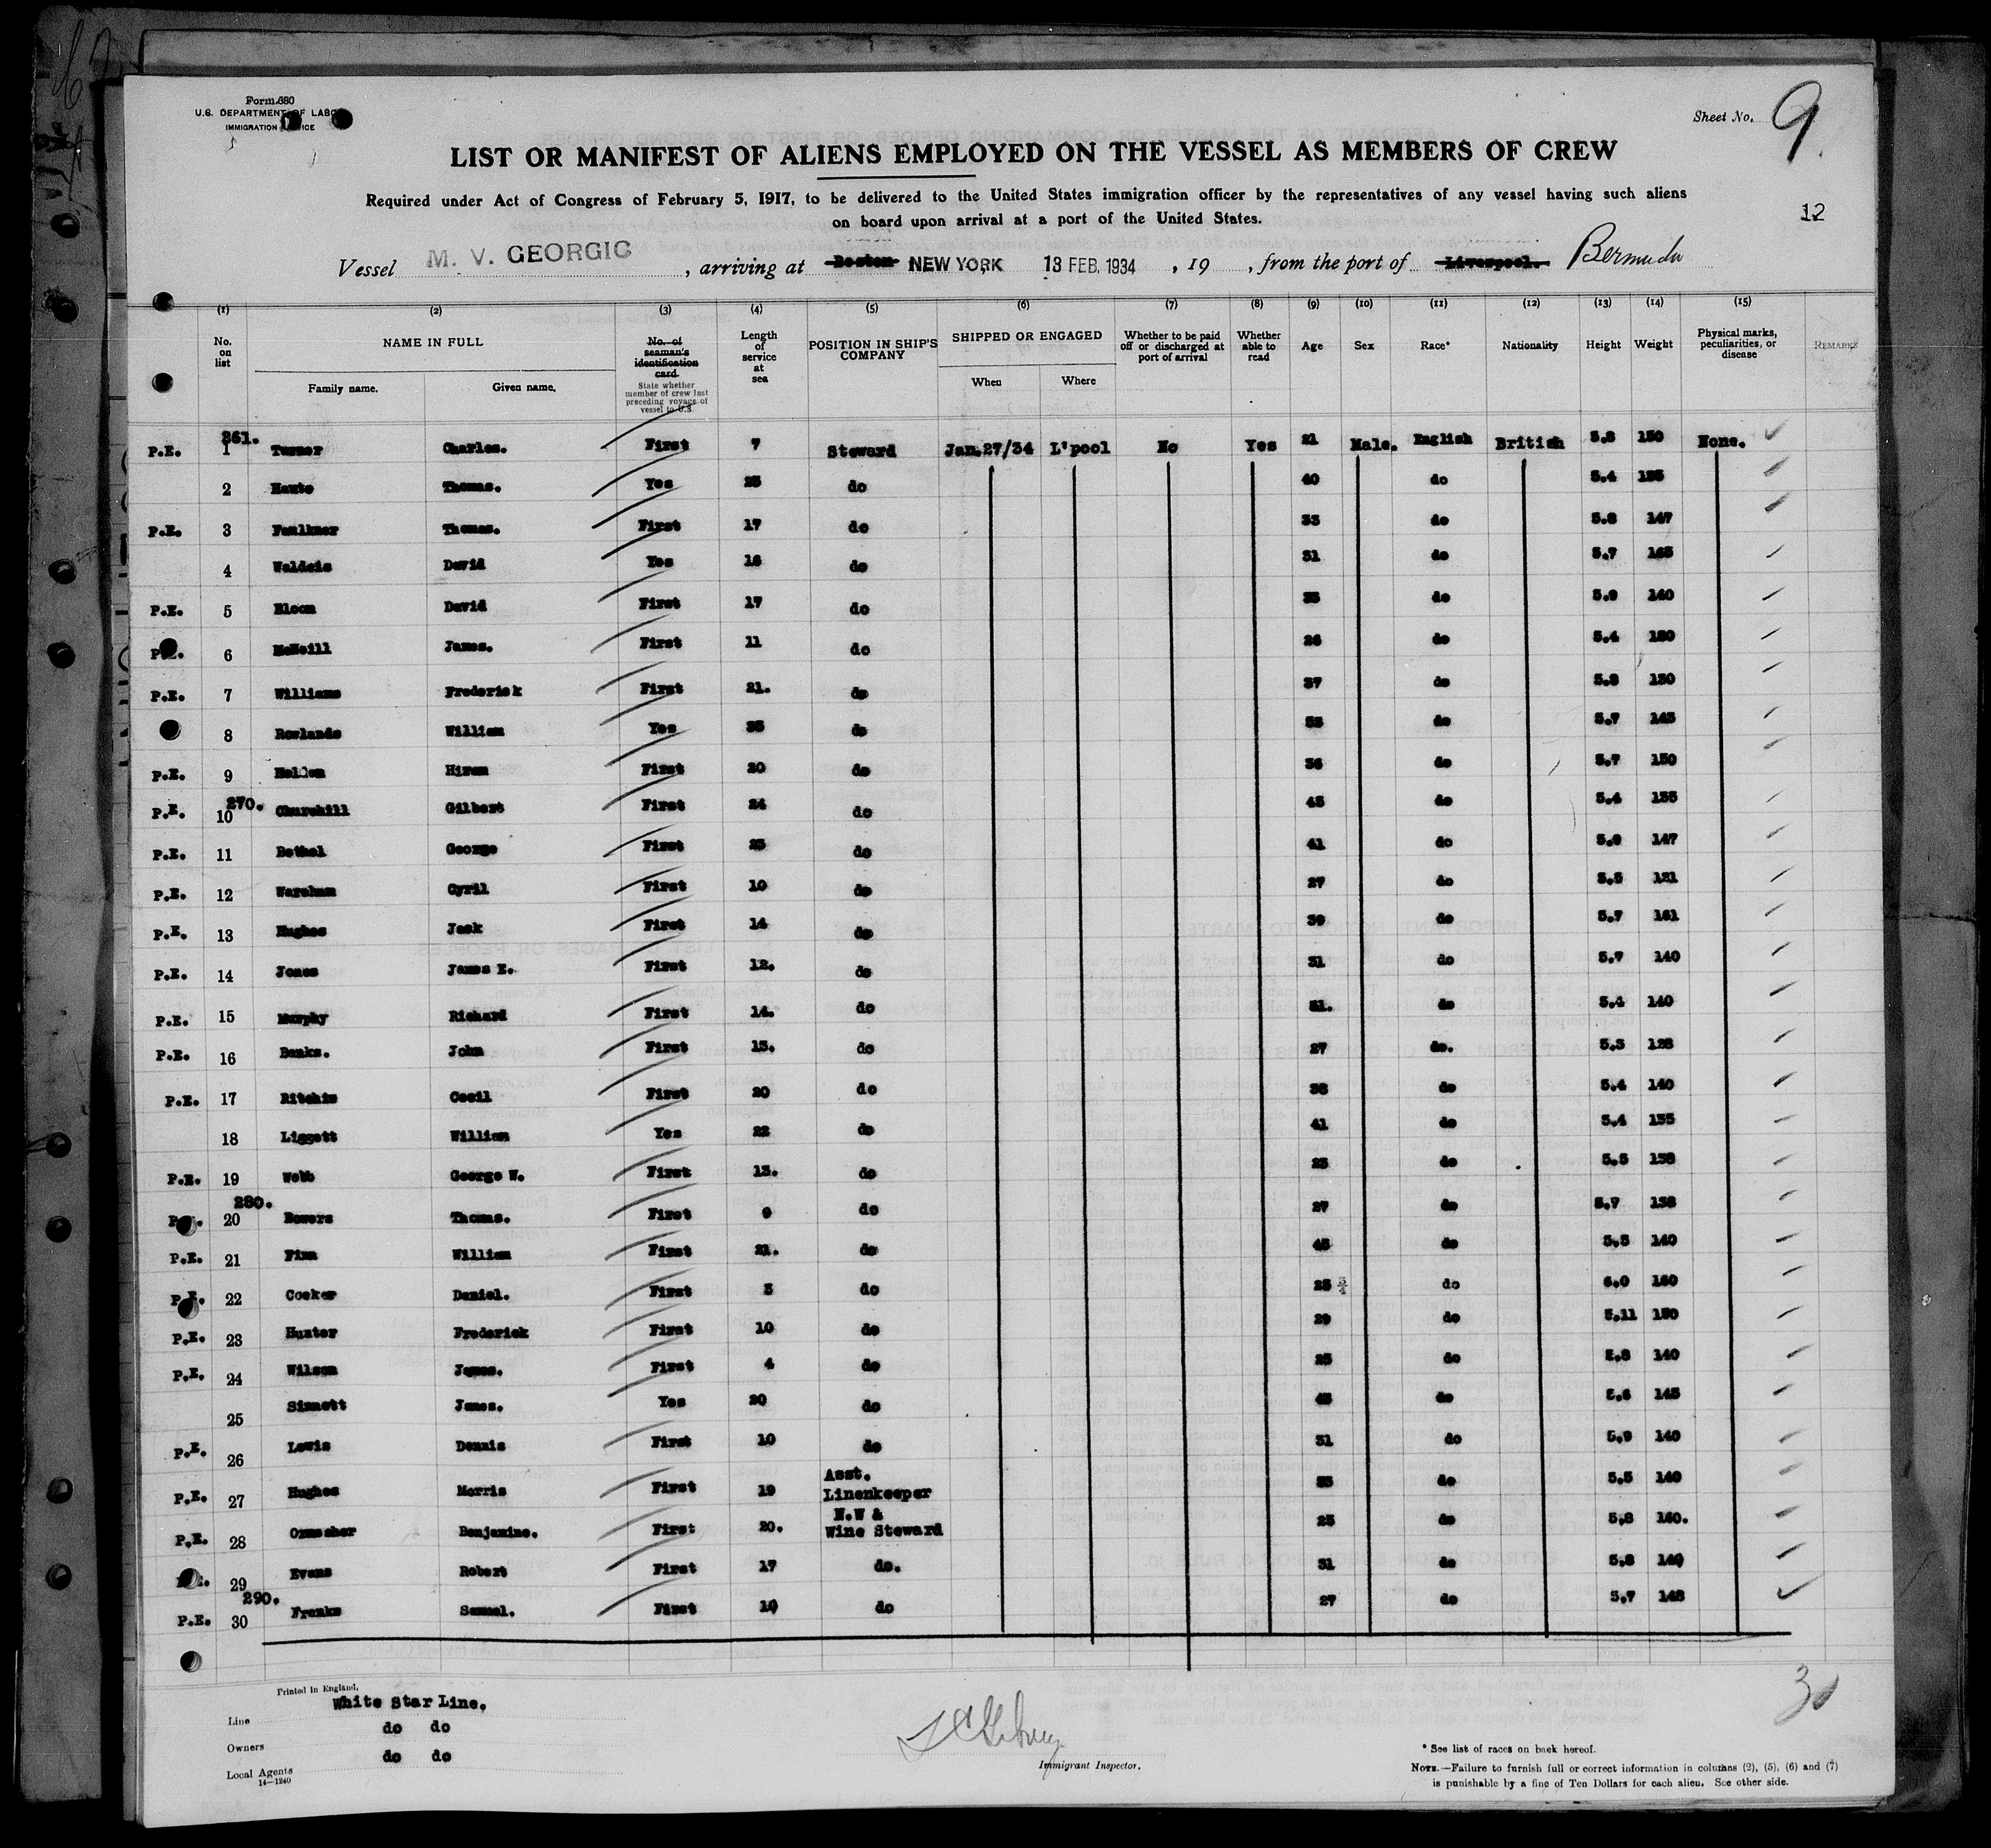 Form 680
U.S. DEPARTMENT OF LABOR
IMMIGRATION SERVICE
Sheet No. 9
LIST OR MANIFEST OF ALIENS EMPLOYED ON THE VESSEL AS MEMBERS OF CREW
Required under Act of Congress of February 5, 1917, to be delivered to the United States immigration officer by the representatives of any vessel having such aliens
on board upon arrival at a port of the United States.
12
Vessel M. V. GEORGIC, arriving at Boston NEW YORK 13 FEB. 1934, 19, from the port of Liverpool. Bermuda
(1) (2) (3) (4) (5) (6) (7) (8) (9) (10) (11) (12) (13) (14) (15)
No. on list NAME IN FULL Family name. Given name. No. of seaman's identification card State whether member of crew last preceding voyage of vessel to U.S. Length of service at sea POSITION IN SHIP'S COMPANY SHIPPED OR ENGAGED When Where Whether to be paid off or discharged at port of arrival Whether able to read Age Sex Race* Nationality Height Weight Physical marks, peculiarities, or disease REMARKS
261.
P.E. 1 Turner Charles. First 7 Steward Jan.27/34 L'pool No Yes 21 Male. English British 5.8 150 None.
2 Haute Thomas. Yes 25 do 40 do 5.4 135
P.E. 3 Faulkner Thomas. First 17 do 33 do 5.8 147
4 David Yes 16 do 31 do 5.7 165
P.E. 5 Bloom David First 17 do 35 do 5.9 140
P.E. 6 McNeill James. First 11 do 26 do 5.4
P.E. 7 Williams Frederick First 21. do 37 do 5.8 150
8 Rowlands William Yes 35 do 53 do 5.7 145
P.E. 9 Hiram First 20 do 36 do 5.7 150
270.
P.E. 10 Churchill Gilbert First 24 do 45 do 5.4 135
P.E. 11 Bethel George First 25 do 41 do 147
P.E. 12 Wareham Cyril First 10 do 27 do 5.5 121
P.E. 13 Hughes Jack First 14 do 39 do 5.7 161
P.E. 14 Jones James E. First 12. do 31 do 5.7 140
P.E. 15 Murphy Richard First 14. do 31. do 5.4 140
P.E. 16 Banks. John First 13. do 27 do. 5.3 128
P.E. 17 Ritchie Cecil First 20 do 38 do 5.4 140
18 Liggett William Yes 22 do 41 do 5.4 135
P.E. 19 Webb George W. First 13. do do 5.5 138
280.
P.E. 20 Bowers Thomas. First 9 do 27 do 5.7 138
P.E. 21 Finn William First 21. do 45 do 5.5 140
P.E. 22 Cocker Daniel. First 3 do 25 do 6.0 160
P.E. 23 Hunter Frederick First 10 do 29 do 5.11 150
P.E. 24 Wilson James. First 4 do 25 do 5.8 140
25 Sinnott James. Yes 20 do 45 do 5.6 145
P.E. 26 Lewis Dennis First 10 do 31 do 5.9 140
P.E. 27 Hughes Morris First 19 Asst. Linenkeeper do 5.5 140
P.E. 28 Ormesher Benjamine. First 20. N.W & Wine Steward do 5.8 160.
29 Evans Robert First 17 do. 31 do 5.8 140
290.
P.E. 30 Franks Samuel. First 10 do 27 do 5.7 148
30
Printed in England.
Line White Star Line.
Owners do do
Local Agents do do
14—1240
Immigrant Inspector.
* See list of races on back hereof.
NOTE.—Failure to furnish full or correct information in columns (2), (5), (6) and (7)
is punishable by a fine of Ten Dollars for each alien. See other side.